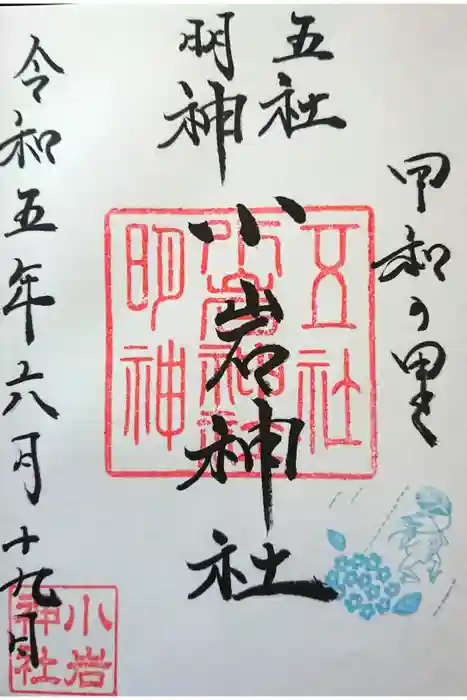 甲和の里
五社
明神
小岩神社
令和五年六月十九日
五社
小岩神社
明神
小岩
神社